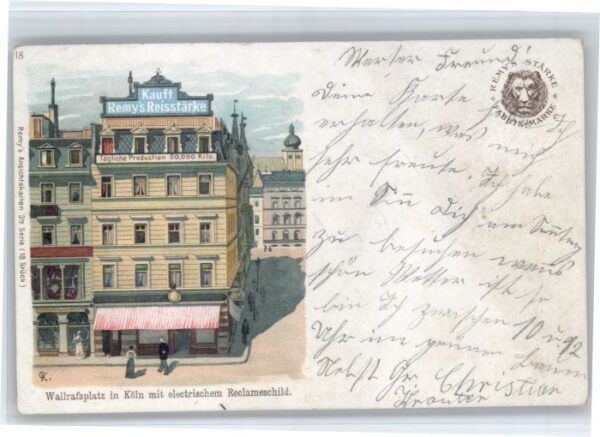 18
Kauft
Remy's Reisstärke
Tägliche Production 50,000 Kilo.
Remy's Ansichtskarten 3te Serie (18 Stück)
Wallrafsplatz in Köln mit electrischem Reclameschild.
REMY'S STÄRKE
FABRIK-MARKE
Werter Freund!
Deine Karte Ich
erhalten, was mich
sehr freute. Ich habe
im Sinn Dich am
zu besuchen wenns
schön Wetter ist so
bin Ich zwischen 10 u 12
Uhr im grünen Baum
Nebst Gr. Christian